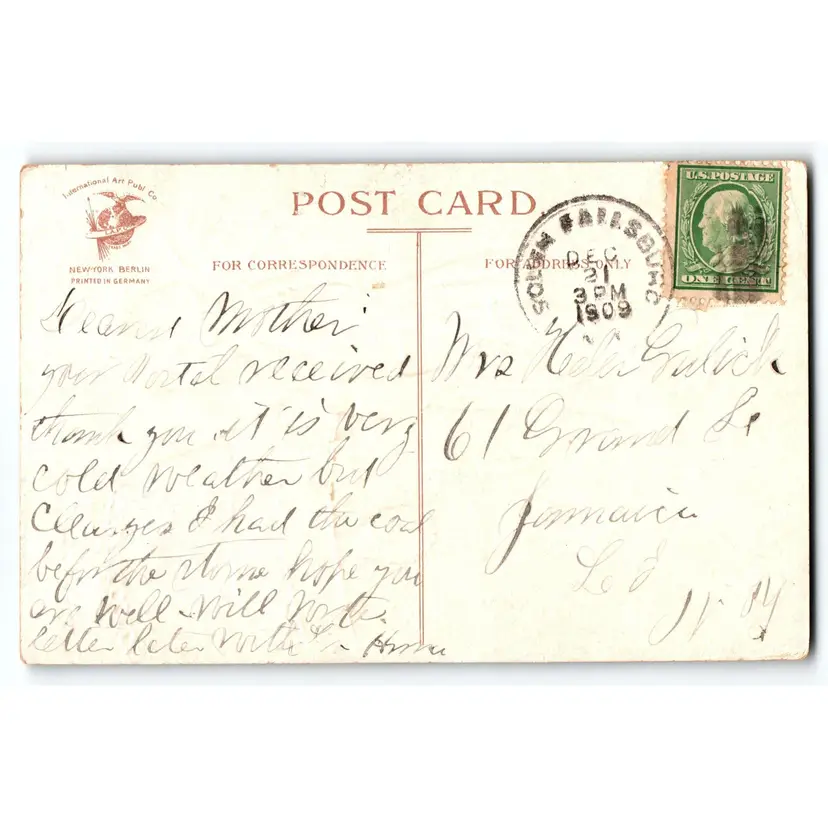 International Art Publ. Co.
NEW-YORK BERLIN
PRINTED IN GERMANY
POST CARD
FOR CORRESPONDENCE
FOR ADDRESS ONLY
SOUTH FALLSBURG
DEC
21
3 PM
1909
U.S. POSTAGE
ONE CENT
Dearest Mother
your Postal received
thank you it is very
cold weather but
I had the coal
before the storm hope you
are well will write
letter later
Mrs Gulick
61 Grand St
Jamaica
L I
N Y